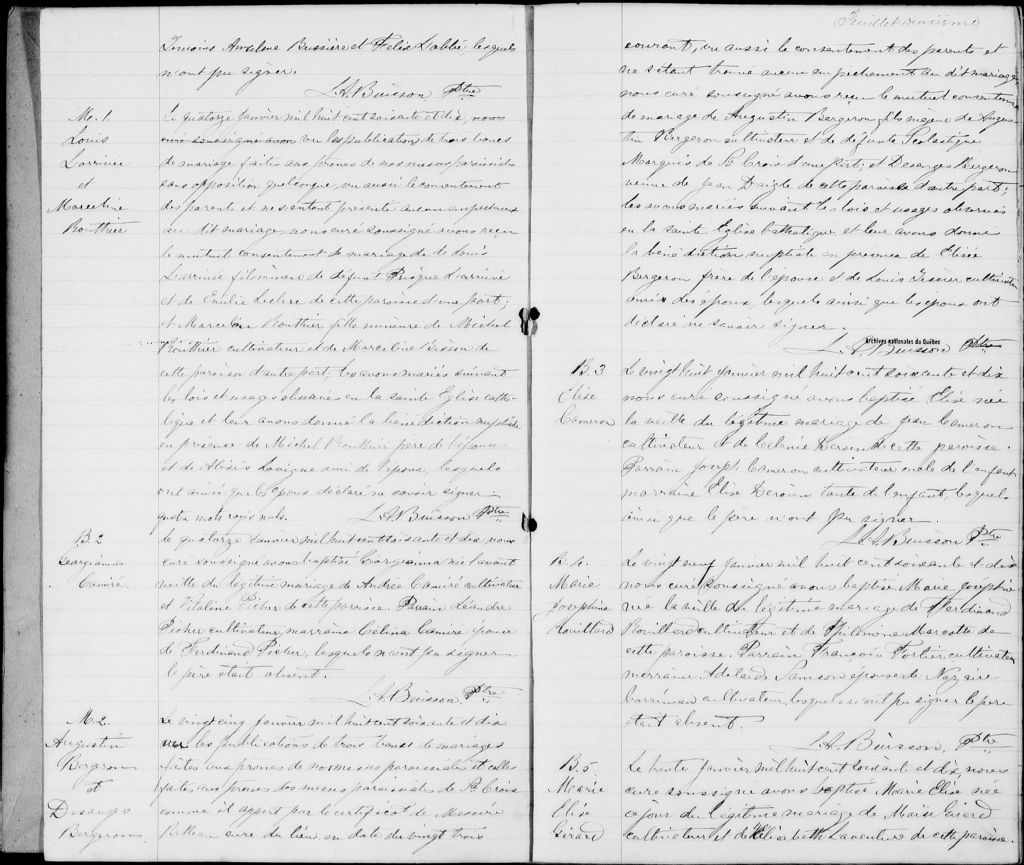 Témoins Anselme Bussière et Felix Labbé lesquels
n'ont pu signer.
L.A. Buisson Ptre
M. 1.
Louis
Larrivée
et
Marceline
Routhier
Le quatorze janvier mil huit cent soixante et dix, nous
curé soussigné avons vu les publications de trois bancs
de mariage faites aux prônes de nos messes paroissiales
sans opposition quelconque, vu aussi le consentement
des parents et ne s'entant présenté aucun empêchement
au dit mariage, nous curé soussigné avons reçu
le mutuel consentement de mariage de Louis
Larrivée fils mineur de défunt Larrivée
et de Emilie Leclerc de cette paroisse d'une part;
et Marceline Routhier fille mineure de Michel
Routhier cultivateur et de Marceline Bisson de
cette paroisse d'autre part, les avons mariés suivant
les lois et usages observés en la sainte Eglise catho-
lique et leur avons donné la bénédiction nuptiale
en présence de Michel Routhier père de l'épouse
et de Alexis Lavigne ami de l'époux, lesquels
ont ainsi que les époux déclaré ne savoir signer
quatre mots rayés nuls.
L.A. Buisson Ptre
B. 2
Georgianna
Camiré
Le quatorze Janvier mil huit cent soixante et dix nous
curé soussigné avons baptisé Georgianna née l'avant
veille du légitime mariage de André Camiré cultivateur
et Vitaline Picher de cette paroisse. Parrain Léandre
Picher cultivateur, marraine Célina Camiré épouse
de Ferdinand Picher, lesquels n'ont pu signer
le père était absent.
L.A. Buisson, Ptre
M. 2.
Augustin
Bergeron
et
Desanges
Bergeron
Le vingt cinq janvier mil huit cent soixante et dix
vu les publications de trois bancs de mariages
faites aux prônes de nos messes paroissiales et celles
faites aux prônes des messes paroissiales de Ste Croix
comme il appert par le certificat de Messire
Belleau curé du lieu, en date du vingt trois
Feuillet deuxième
courant, vu aussi le consentement des parents et
ne s'étant trouvé aucun empêchement au dit mariage,
nous curé soussigné avons reçu le mutuel consentement
de mariage de Augustin Bergeron fils majeur de Augus-
tin Bergeron cultivateur et de défunte Scolastique
Marquis de Ste Croix d'une part; et Desanges Bergeron
veuve de Jean Daigle de cette paroisse d'autre part;
les avons mariés suivant les lois et usages observés
en la sainte Eglise Catholique et leur avons donné
la bénédiction nuptiale en présence de Elisée
Bergeron frère de l'épouse et de Louis Tessier cultivateur
amis des époux, lesquels ainsi que les époux ont
déclaré ne savoir signer.
Archives nationales du Québec
L.A. Buisson Ptre
B. 3
Elise
Cameron
Le vingt huit janvier mil huit cent soixante et dix
nous curé soussigné avons baptisé Elise née
la veille du légitime mariage de Jean Cameron
cultivateur et de Célenie Derouin de cette paroisse.
Parrain Joseph Cameron cultivateur oncle de l'enfant
marraine Elise Derouin tante de l'enfant, lesquels
ainsi que le père n'ont pu signer.
L.A. Buisson Ptre
B. 4.
Marie
Josephine
Rouillard
Le vingt neuf janvier mil huit cent soixante et dix
nous curé soussigné avons baptisé Marie Joséphine
née la veille du légitime mariage de Ferdinand
Rouillard cultivateur et de Philomène Marcotte de
cette paroisse. Parrain François Fortier cultivateur
marraine Adelaide Samson épouse de Nazaire
cultivateur, lesquels n'ont pu signer le père
étant absent.
L.A. Buisson, Ptre
B. 5
Marie
Elise
Girard
Le trente janvier mil huit cent soixante et dix, nous
curé soussigné avons baptisé Marie Elise née
ce jour du légitime mariage de Moïse Girard
cultivateur et de Elisabeth Laventure de cette paroisse.